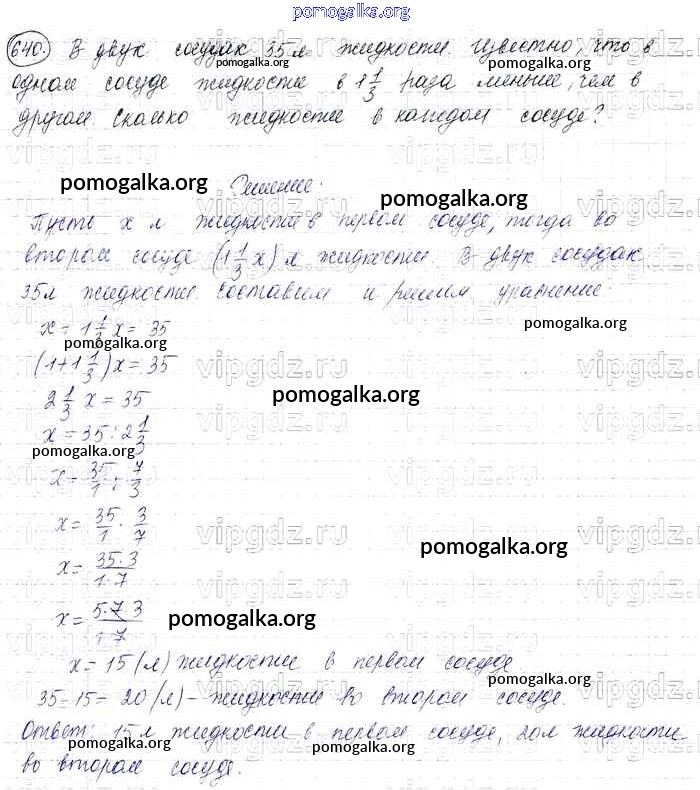 pomogalka.org
640. В двух сосудах 35 л жидкости. Известно, что в
pomogalka.org pomogalka.org
одном сосуде жидкости в 1 1/3 раза меньше, чем в
другом. Сколько жидкости в каждом сосуде?
vipgdz.ru vipgdz.ru vipgdz.ru
pomogalka.org Решение:
pomogalka.org
Пусть x л жидкости в первом сосуде, тогда во
втором сосуде (1 1/3 x) л жидкости. В двух сосудах
35 л жидкости. Составим и решим уравнение:
x + 1 1/3 x = 35
pomogalka.org pomogalka.org
(1 + 1 1/3) x = 35
vipgdz.ru vipgdz.ru
2 1/3 x = 35 pomogalka.org
x = 35 : 2 1/3
pomogalka.org
x = 35/1 : 7/3
x = 35/1 · 3/7
vipgdz.ru vipgdz.ru vipgdz.ru
pomogalka.org
x = 35·3/1·7
x = 5·7·3/1·7 pomogalka.org
x = 15 (л) жидкости в первом сосуде
pomogalka.org
35 - 15 = 20 (л) - жидкости во втором сосуде.
Ответ: 15 л жидкости в первом сосуде, 20 л жидкости
pomogalka.org pomogalka.org
во втором сосуде.